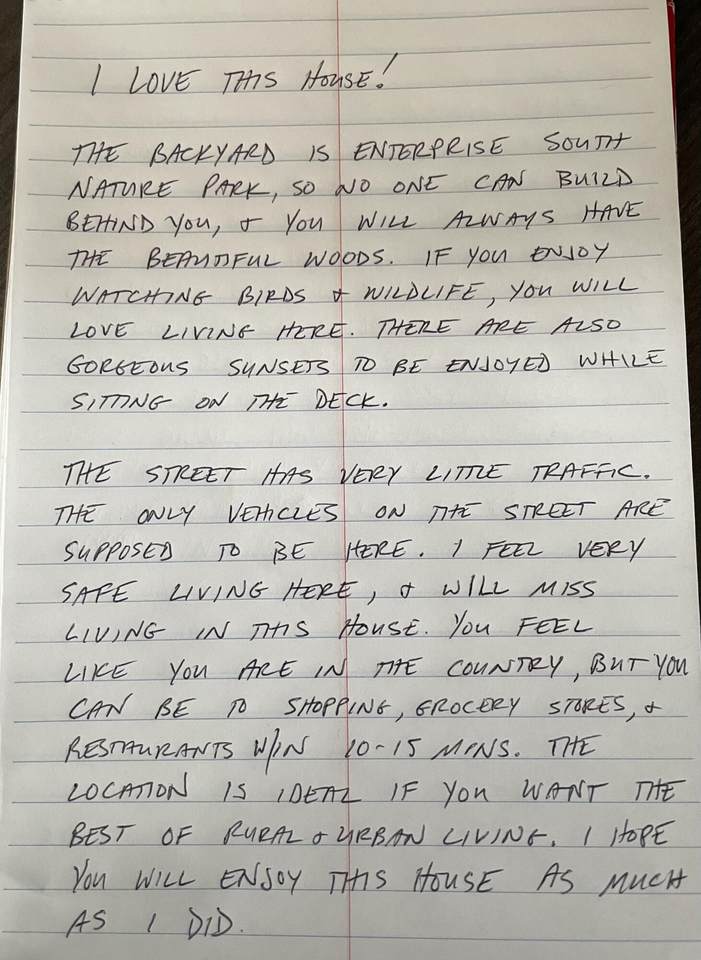 I LOVE THIS HOUSE!
THE BACKYARD IS ENTERPRISE SOUTH
NATURE PARK, SO NO ONE CAN BUILD
BEHIND YOU, & YOU WILL ALWAYS HAVE
THE BEAUTIFUL WOODS. IF YOU ENJOY
WATCHING BIRDS & WILDLIFE, YOU WILL
LOVE LIVING HERE. THERE ARE ALSO
GORGEOUS SUNSETS TO BE ENJOYED WHILE
SITTING ON THE DECK.
THE STREET HAS VERY LITTLE TRAFFIC.
THE ONLY VEHICLES ON THE STREET ARE
SUPPOSED TO BE HERE. I FEEL VERY
SAFE LIVING HERE, & WILL MISS
LIVING IN THIS HOUSE. YOU FEEL
LIKE YOU ARE IN THE COUNTRY, BUT YOU
CAN BE TO SHOPPING, GROCERY STORES, &
RESTAURANTS W/IN 10-15 MINS. THE
LOCATION IS IDEAL IF YOU WANT THE
BEST OF RURAL & URBAN LIVING. I HOPE
YOU WILL ENJOY THIS HOUSE AS MUCH
AS I DID.